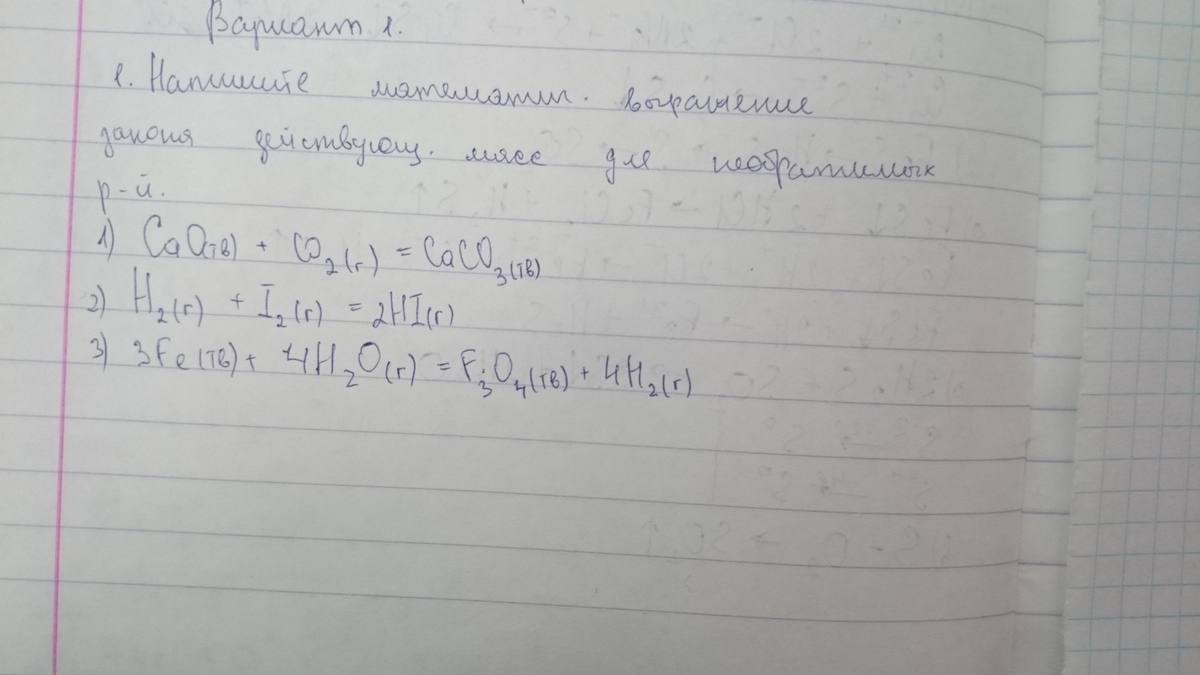 Вариант 1.
1. Напишите математич. выражение
закона действующ. масс для необратимых
р-й.
1) CaO(тв) + CO₂(г) = CaCO₃(тв)
2) H₂(г) + I₂(г) = 2HI(г)
3) 3Fe(тв) + 4H₂O(г) = F₃O₄(тв) + 4H₂(г)